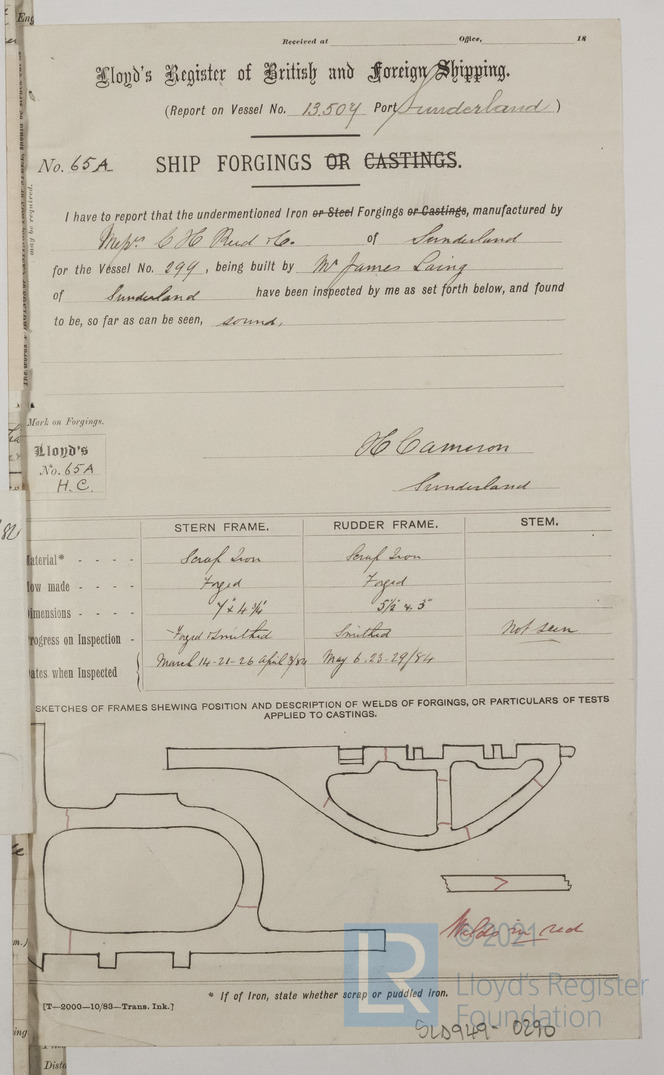 Received at Office, 18
Lloyd's Register of British and Foreign Shipping.
(Report on Vessel No. 13.507 Port Sunderland)
No. 65A SHIP FORGINGS OR CASTINGS.
I have to report that the undermentioned Iron or Steel Forgings or Castings, manufactured by
Messrs. C H Reid & Co. of Sunderland
for the Vessel No. 299, being built by Mr James Laing
of Sunderland have been inspected by me as set forth below, and found
to be, so far as can be seen, sound.
may be required.
Mark on Forgings.
Lloyd's
No. 65A
H. C.
H Cameron
Sunderland
STERN FRAME. RUDDER FRAME. STEM.
aterial* - - - - Scrap Iron Scrap Iron
ow made - - - - Forged Forged
imensions - - - - 7" x 4 3/4" 5 1/2" x 3"
rogress on Inspection - Forged & Smithed Smithed Not seen
ates when Inspected March 14-21-26 April 3/84 May 6-23-29/84
SKETCHES OF FRAMES SHEWING POSITION AND DESCRIPTION OF WELDS OF FORGINGS, OR PARTICULARS OF TESTS
APPLIED TO CASTINGS.
Welds in red
© 2021
LR Lloyd's Register
Foundation
* If of Iron, state whether scrap or puddled iron.
[T—2000—10/83—Trans. Ink.]
SLD949-0290